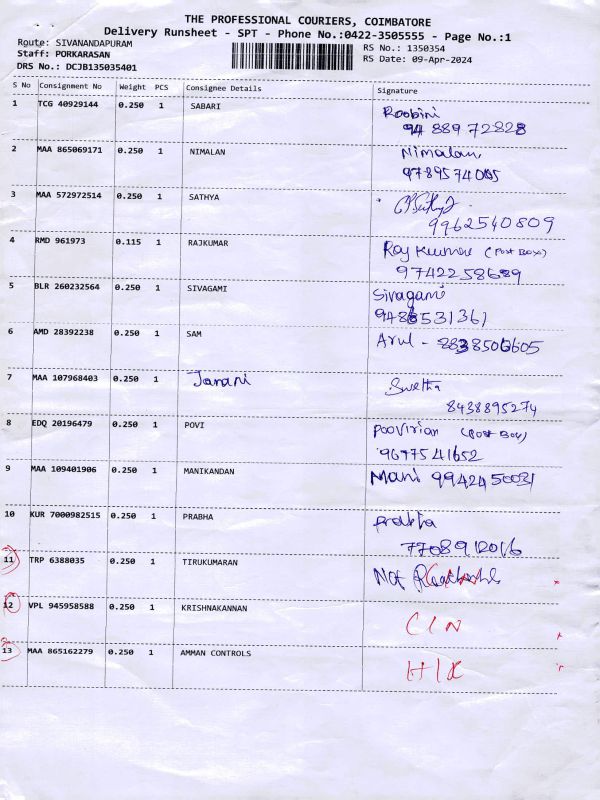 THE PROFESSIONAL COURIERS, COIMBATORE
Delivery Runsheet - SPT - Phone No.:0422-3505555 - Page No.:1
Route: SIVANANDAPURAM
RS No.: 1350354
Staff: PORKARASAN
RS Date: 09-Apr-2024
DRS No.: DCJB135035401
S No Consignment No Weight PCS Consignee Details Signature
1 TCG 40929144 0.250 1 SABARI Roobini
94 889 72828
2 MAA 865069171 0.250 1 NIMALAN Nimalan
9789574005
3 MAA 572972514 0.250 1 SATHYA
9962540809
4 RMD 961973 0.115 1 RAJKUMAR Raj Kumar (Post Box)
9742258689
5 BLR 260232564 0.250 1 SIVAGAMI Sivagami
9486531361
6 AMD 28392238 0.250 1 SAM Arul - 2838506605
7 MAA 107968403 0.250 1 Janani Swetha
8438895274
8 EDQ 20196479 0.250 1 POVI Poovirian (Post Box)
9677541652
9 MAA 109401906 0.250 1 MANIKANDAN Mani 9942450031
10 KUR 7000982515 0.250 1 PRABHA Prabha
7708912016
11 TRP 6388035 0.250 1 TIRUKUMARAN Not
12 VPL 945958588 0.250 1 KRISHNAKANNAN CIN
13 MAA 865162279 0.250 1 AMMAN CONTROLS